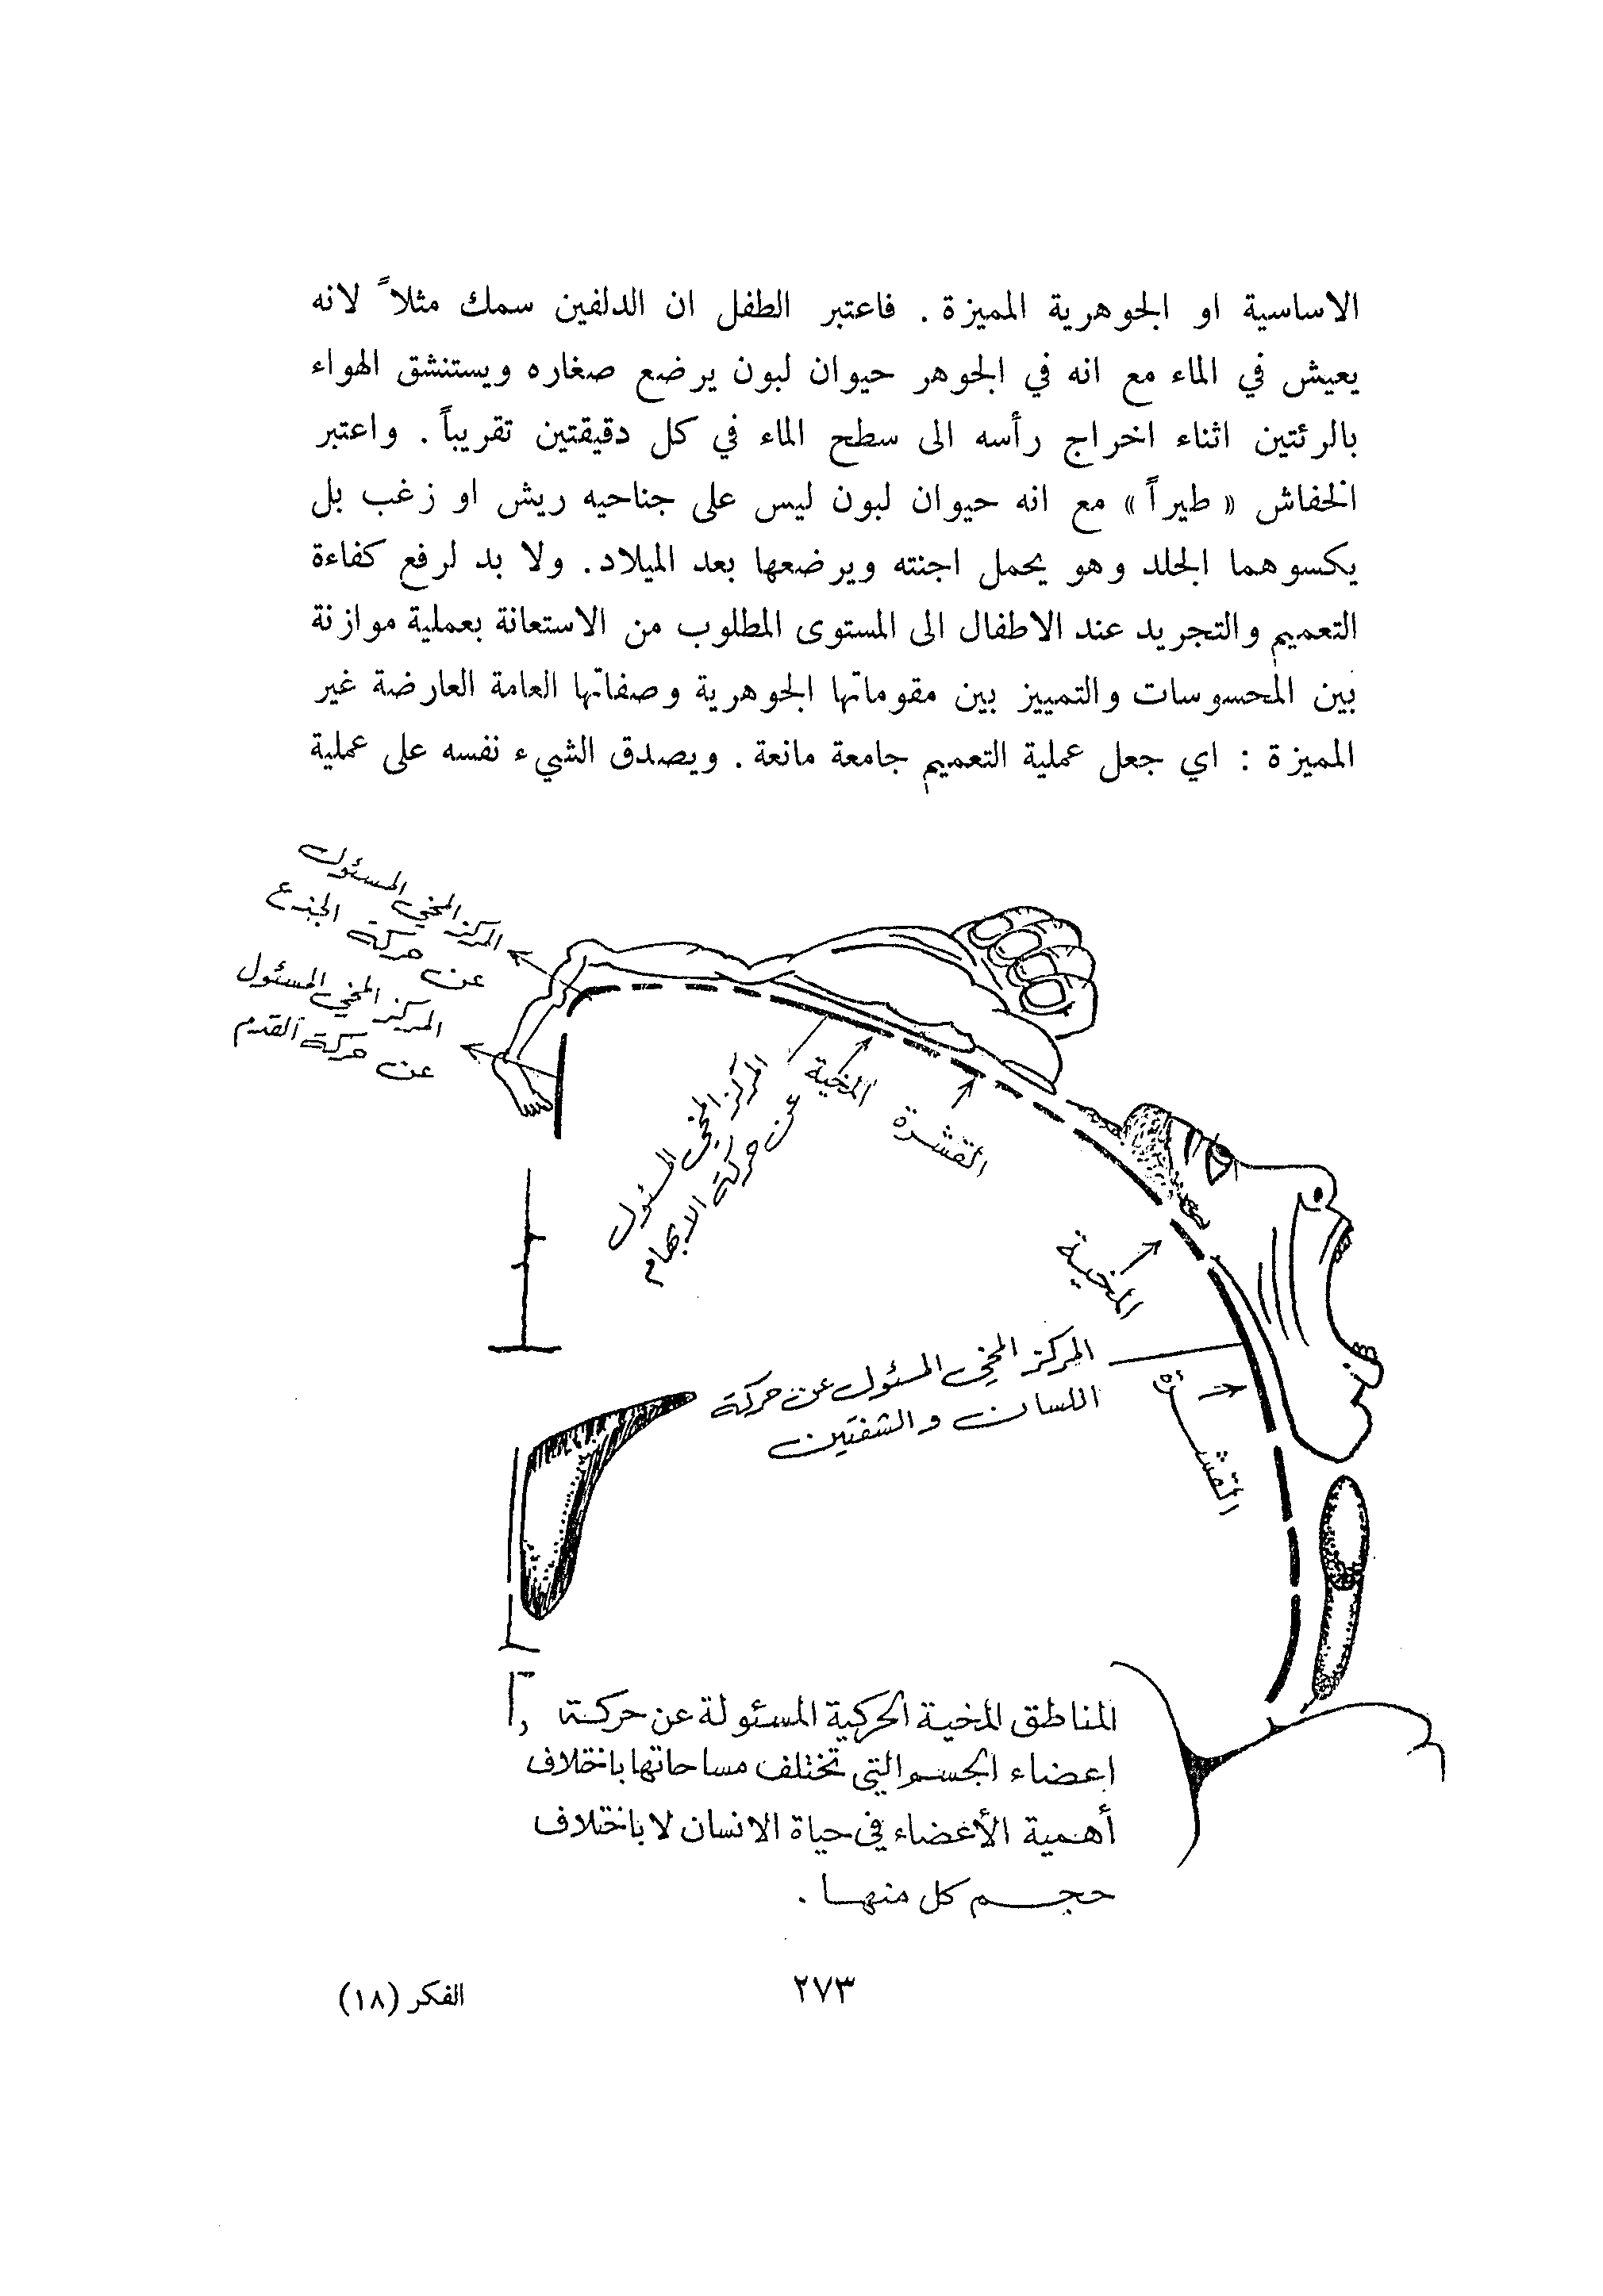 الاساسية او الجوهرية المميزة . فاعتبر الطفل ان الدلفين سمك مثلاً لانه
يعيش في الماء مع انه في الجوهر حيوان لبون يرضع صغاره ويستنشق الهواء
بالرئتين اثناء اخراج رأسه الى سطح الماء في كل دقيقتين تقريباً . واعتبر
الخفاش « طيراً » مع انه حيوان لبون ليس على جناحيه ريش او زغب بل
يكسوهما الجلد وهو يحمل اجنته ويرضعها بعد الميلاد . ولا بد لرفع كفاءة
التعميم والتجريد عند الاطفال الى المستوى المطلوب من الاستعانة بعملية موازنة
بين المحسوسات والتمييز بين مقوماتها الجوهرية وصفاتها العامة العارضة غير
المميزة : اي جعل عملية التعميم جامعة مانعة . ويصدق الشيء نفسه على عملية
المركز المخي المسئول
عن حركة الجذع
المركز المخي المسئول
عن حركة القدم
المركز المخي المسئول
عن حركة الابهام
المخية
القشرة
المخية
المركز المخي المسئول عن حركة
اللسان والشفتين
القشرة
المناطق المخية الحركية المسئولة عن حركة
اعضاء الجسم التي تختلف مساحاتها باختلاف
أهمية الأعضاء في حياة الانسان لا باختلاف
حجم كل منها .
٢٧٣
الفكر (١٨)